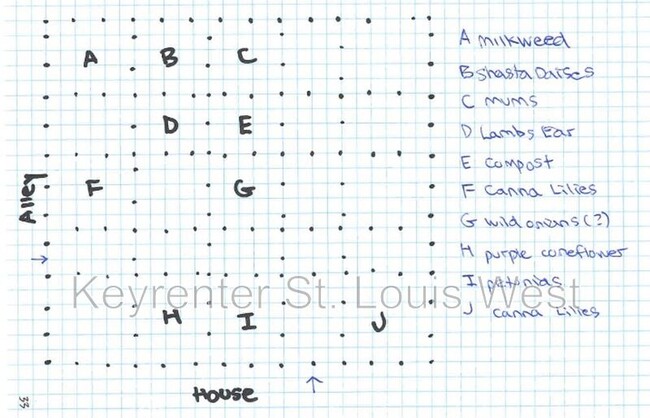 A B C
D E
F G
H I J
Alley
House
A milkweed
B Shasta Daises
C mums
D Lambs Ear
E compost
F Canna Lilies
G wild onions(?)
H purple coneflower
I petunias
J Canna Lilies
Keyrenter St. Louis West
33